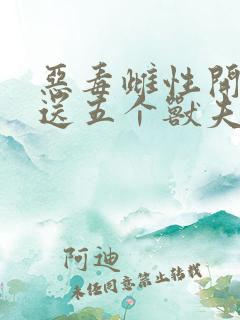 惡毒雌性開
送五个獸夫
阿迪
未经同意禁止转载